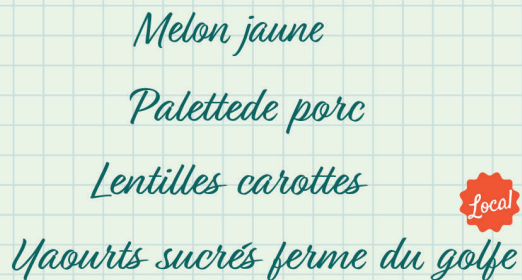 Melon jaune
Palettede porc
Lentilles carottes
Local
Yaourts sucrés ferme du golfe